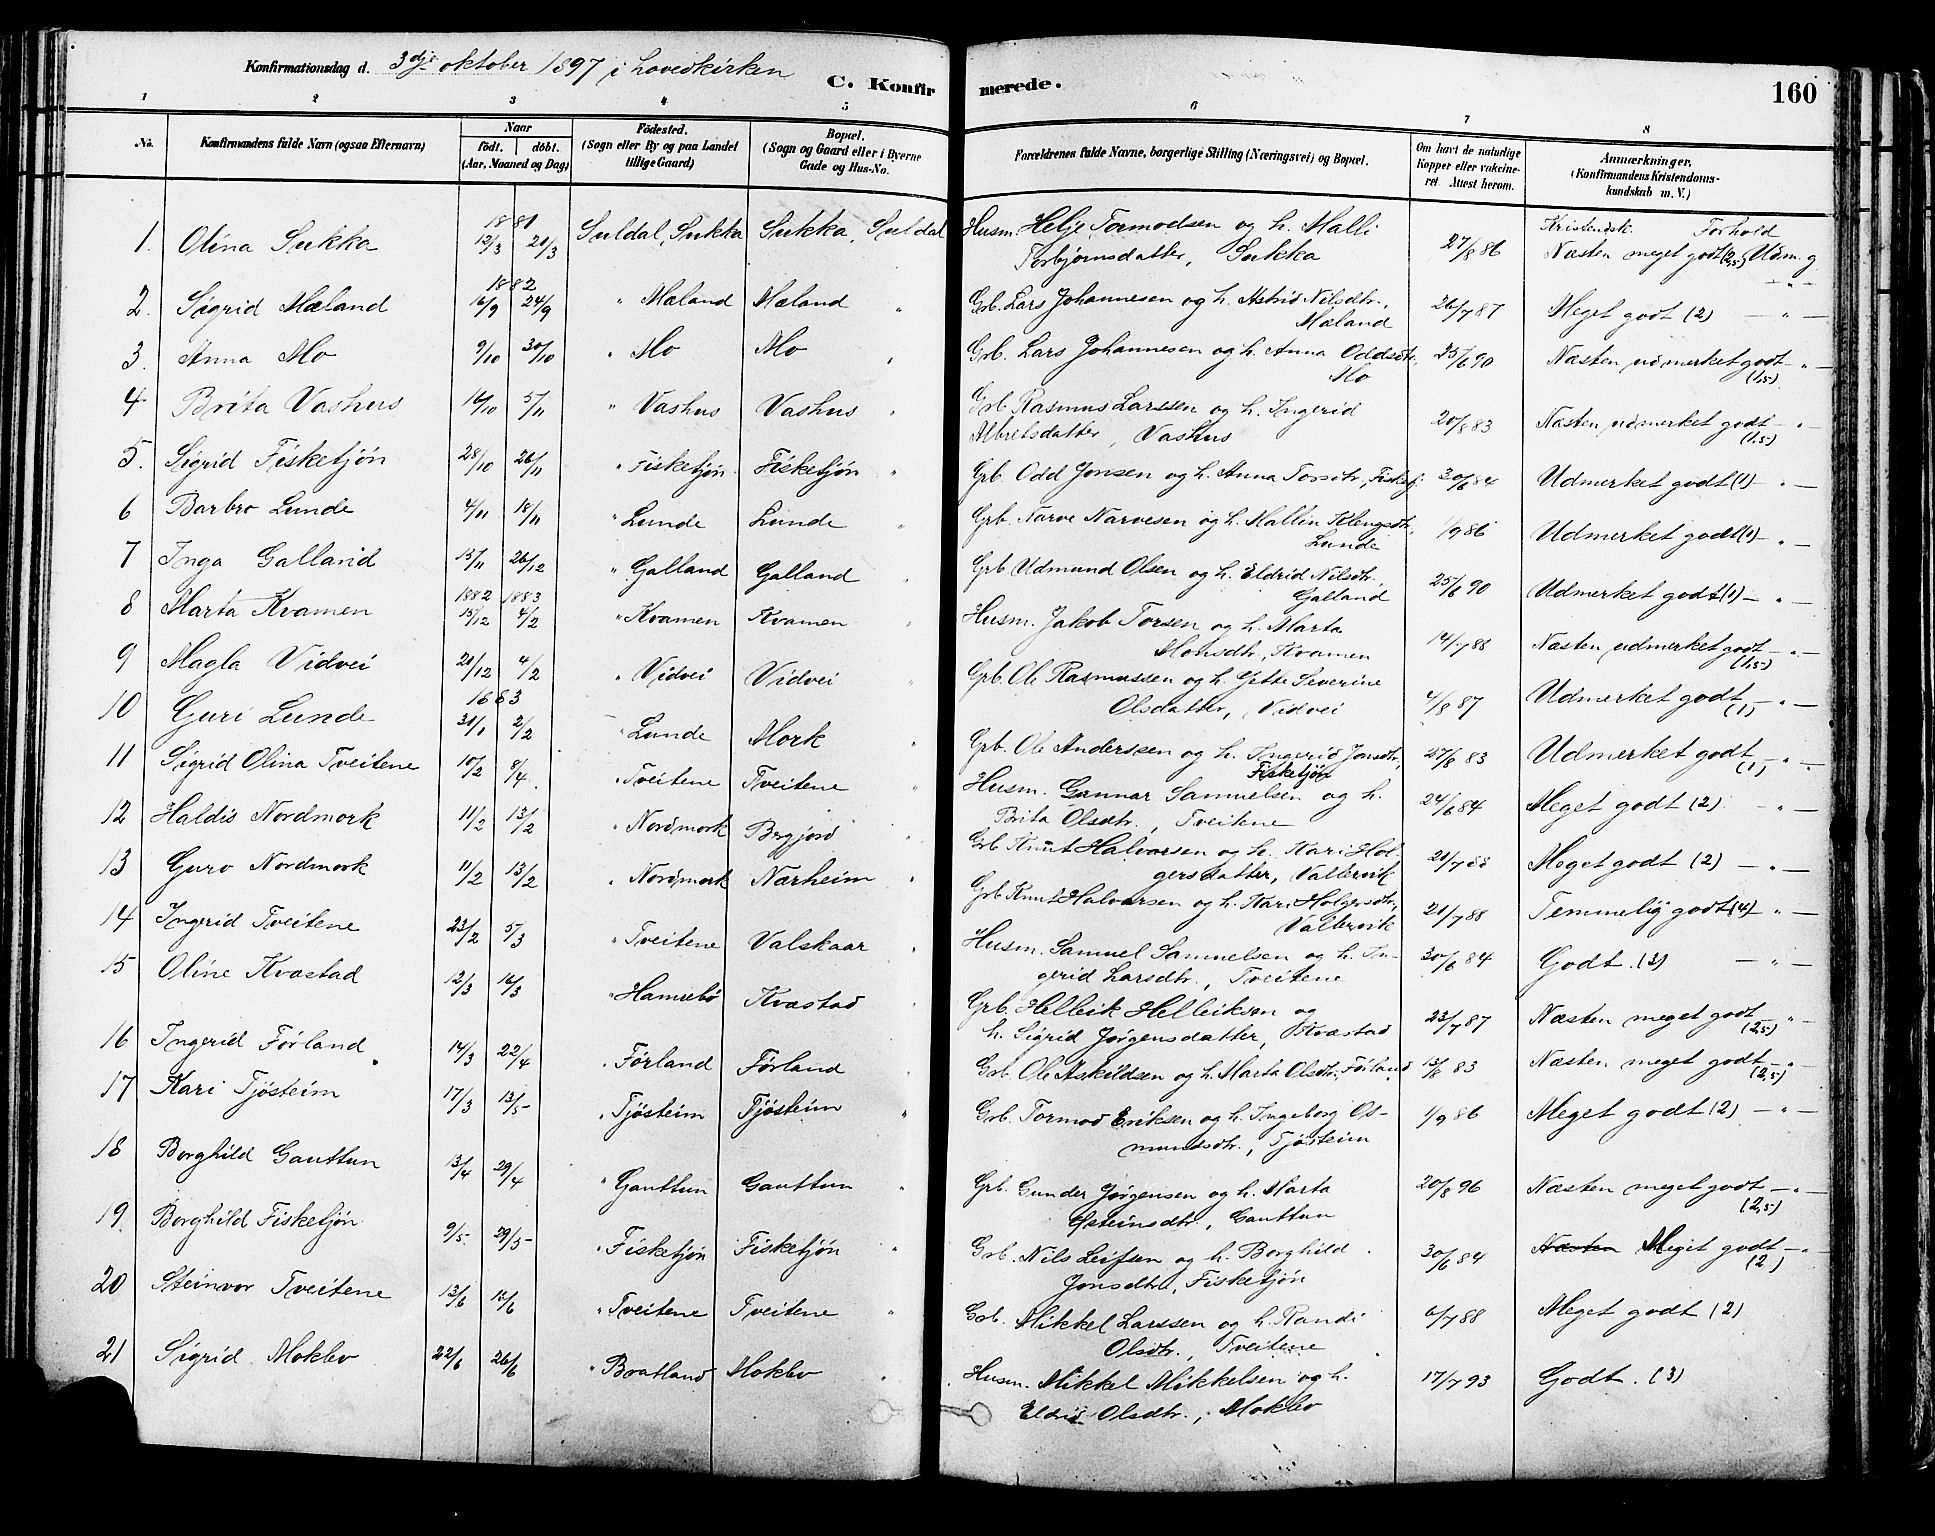 Konfirmationsdag d. 3dje oktober 1897 i hovedkirken C. Konfirmerede. 160
1 2 3 4 5 6 7 8
No. Konfirmandens fulde Navn (ogsaa Efternavn) Naar født. døbt. (Aar, Maaned og Dag) Fødested. (Sogn eller By og paa Landet tillige Gaard) Bopæl. (Sogn og Gaard eller i Byerne Gade og Hus-No. Forældrenes fulde Navne, borgerlige Stilling (Næringsvei) og Bopæl. Om havt de naturlige Kopper eller vakcineret. Attest herom. Anmærkninger. (Konfirmandens Kristendomskundskab m. V.)
Kristendsk. Forhold
1881
1. Olina Sukka 12/3 20/3 Suldal, Sukka Sukka, Suldal Husm. Helje Tormodsen og h. Malli 27/8 86 Næsten meget godt (2,5) Udm. g
Torbjørnsdatter, Sukka
1882
2. Sigrid Mæland 16/9 24/9 " Mæland Mæland " Grb. Lars Johannesen og h. Astrid Nilsdtr., 26/7 87 Meget godt (2) — " —
Mæland
3. Anna Mo 9/10 30/10 " Mo Mo " Grb. Lars Johannesen og h. Anna Oddsdtr., 25/6 90 Næsten udmerket godt — " —
Mo (1,5)
4 Brita Vashus 16/10 5/11 " Vashus Vashus " Grb Rasmus Larssen og h. Ingerid 20/8 83 Næsten udmerket godt — "
Albretsdatter, Vashus (1,5)
5. Sigrid Fisketjøn 28/10 26/11 " Fisketjøn Fisketjøn " Grb. Odd Jonsen og h. Anna Torsdtr., Fisketj. 30/6 84 Udmerket godt (1) — " —
6 Barbro Lunde 4/11 18/11 " Lunde Lunde " Grb. Narve Narvesen og h. Mallin Klengsdtr, 1/9 86 Udmerket godt (1) — " —
Lunde
7 Inga Galland 15/11 26/12 " Galland Galland " Grb Udmund Olsen og h. Eldrid Nilsdtr., 25/6 90 Udmerket godt (1) — " —
Galland
1882 1883
8 Marta Kvamen 15/12 4/2 " Kvamen Kvamen " Husm. Jakob Torsen og h. Marta 14/7 88 Næsten udmerket godt — " —
Monsdtr., Kvamen (1,5)
9 Magla Vidvei 20/12 4/2 " Vidvei Vidvei " Grb. Ole Rasmussen og h. Jette Severine 4/8 87 Udmerket godt — " —
Olsdatter, Vidvei (1)
1883
10 Guri Lunde 31/1 2/2 " Lunde Mork " Grb. Ole Anderssen og h. Ingerid Jonsdtr, 27/8 83 Udmerket godt — " —
Fisketjøn (1)
11 Sigrid Olina Tveitene 10/2 8/4. " Tveitene Tveitene " Husm. Gunnar Samuelsen og h. 24/6 84 Meget godt (2) — " —
Brita Olsdtr., Tveitene
12 Haldis Nordmork 11/2 13/2 " Nordmork Bergjord " Grb Knut Halvorsen og h. Kari Hol- 21/7 88 Meget godt (2) — " —
gersdatter, Valtervik
13 Guro Nordmork 11/2 13/2 " Nordmork Nærheim " Grb Knut Halvorsen og h. Kari Holgersdtr, 21/7 88 Temmelig godt (4) — " —
Valtervik
14 Ingerid Tveitene 23/2 5/3 " Tveitene Valskaar " Husm. Samuel Samuelsen og h. In- 30/6 84 Godt. (3) — " —
gerid Larsdtr., Tveitene
15 Oline Kvæstad 12/3 16/3 " Hamrebø Kvæstad " Grb. Helleik Helleiksen og 23/7 87 Næsten meget godt — " —
h. Sigrid Jørgensdatter, Kvæstad (2,5)
16 Ingerid Førland 14/3 22/4 " Førland Førland " Grb. Ole Askildsen og h. Marta Olsdtr., Førland 13/8 83 Næsten meget godt — " —
(2,5)
17 Kari Tjøsteim 17/3 13/5 " Tjøsteim Tjøsteim " Grb. Tormod Eriksen og h. Ingeborg Os- 1/9 86 Meget godt (2) — " —
mundsdtr., Tjøsteim
18 Borghild Gauttun 13/4 29/4 " Gauttun Gauttun " Grb. Gunder Jørgensen og h. Marta 20/8 96 Næsten meget godt — " —
Østeinsdtr., Gauttun (2,5)
19 Borghild Fisketjøn 9/5 29/5 " Fisketjøn Fisketjøn " Grb. Nils Leifsen og h. Borghild 30/6 84 Næsten Meget godt — " —
Jonsdtr., Fisketjøn (2)
20 Steinvor Tveitene 13/6 16/6 " Tveitene Tveitene " Grb. Mikkel Larssen og h. Randi 6/7 88 Meget godt (2)
Olsdtr., Tveitene
21 Sigrid Moklev 22/6 26/6 " Bratland Moklev " Husm. Mikkel Mikkelsen og h. 17/7 93 Godt. (3)
Eldrid Olsdtr., Moklev